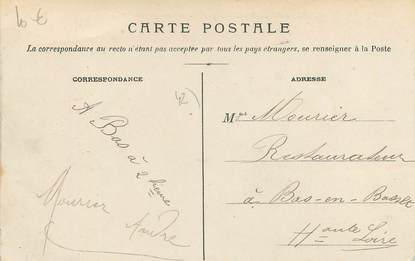 10 €
CARTE POSTALE
La correspondance au recto n'étant pas acceptée par tous les pays étrangers, se renseigner à la Poste
CORRESPONDANCE
A Bas à
2 heure
Mourier
André
ADRESSE
Mr Mourier
Restaurateur
à Bas-en-Basset
Haute Loire